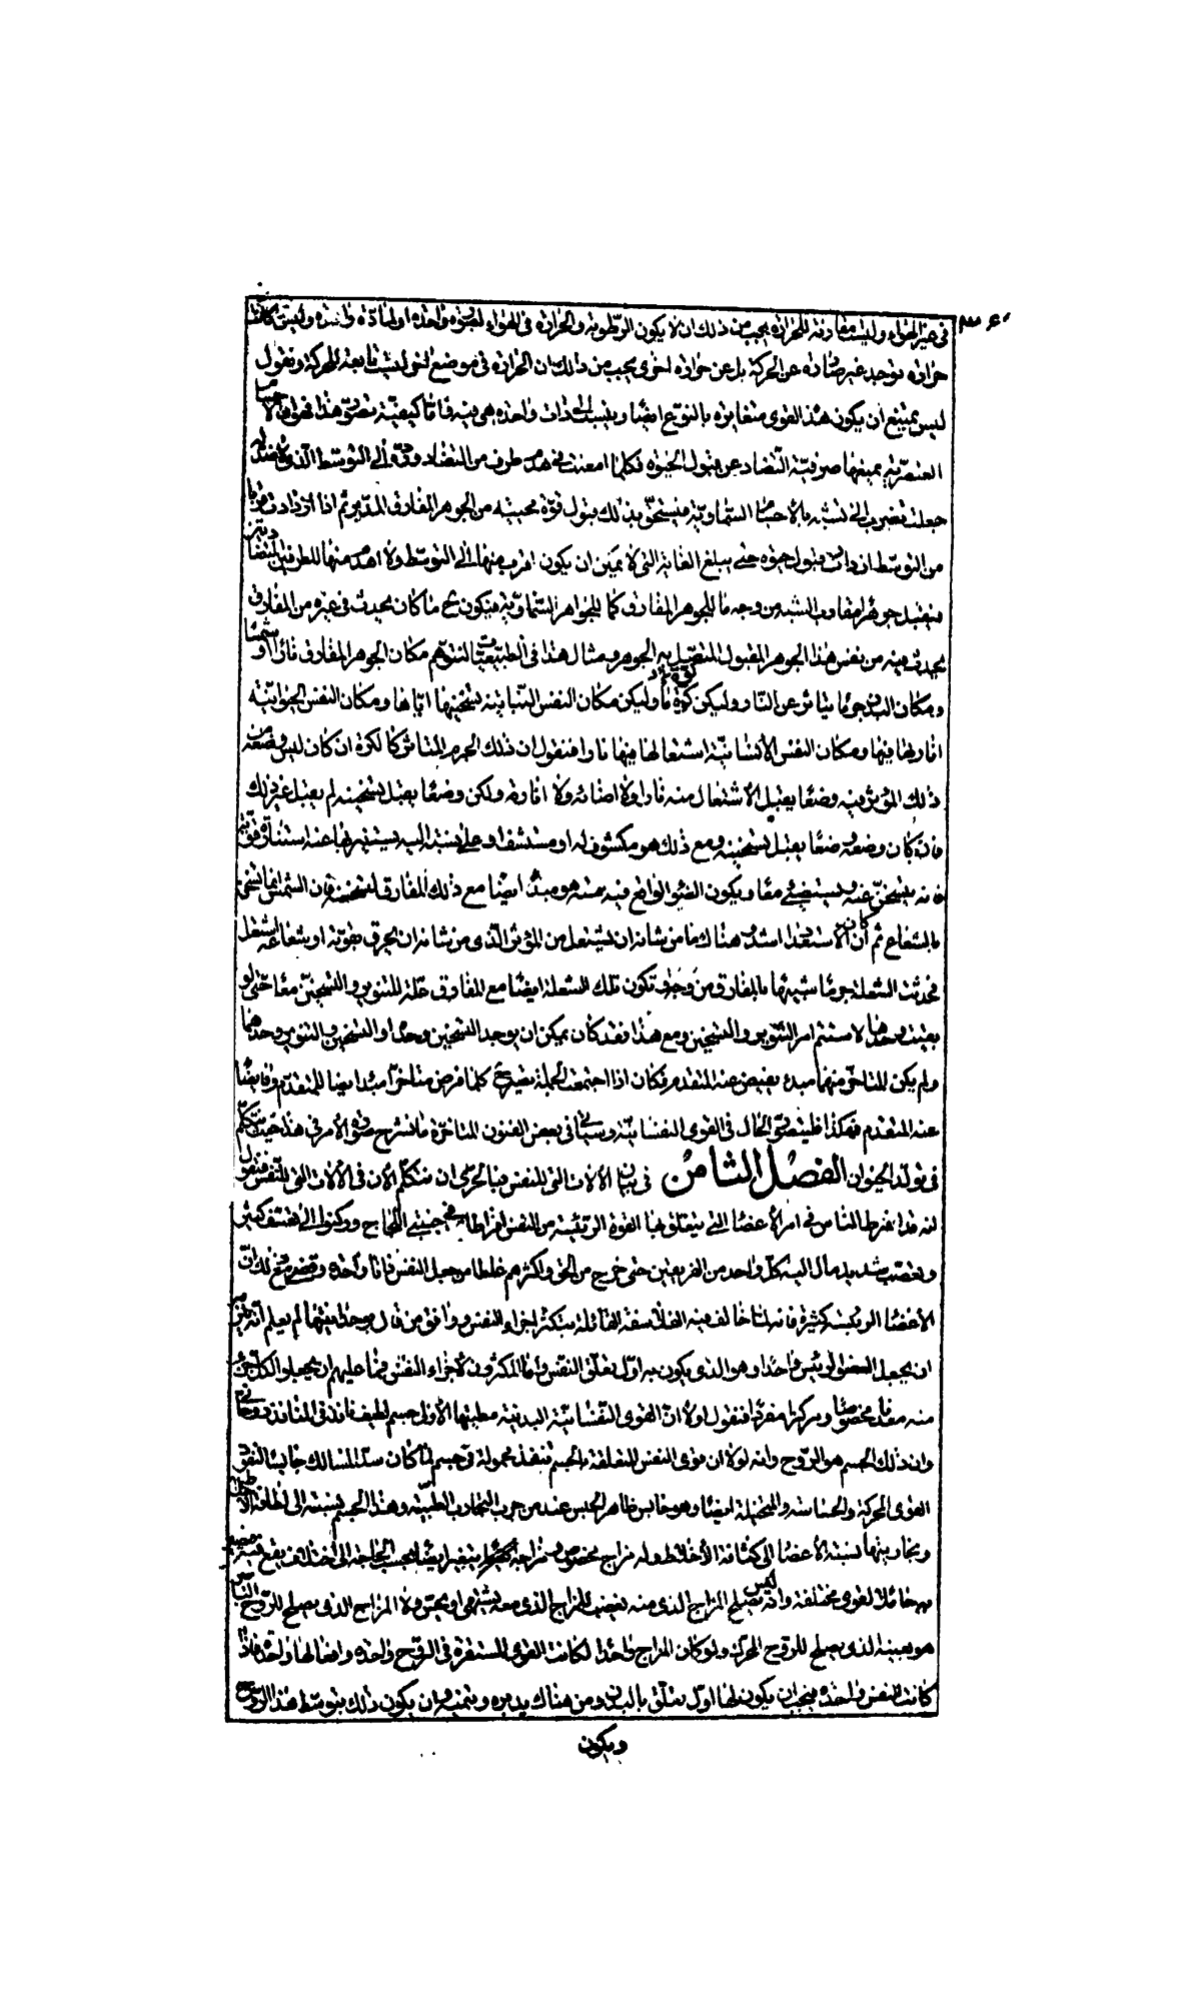 ٣٦٠
في حيز الهواء وليست مقارنة للحرارة يجب من ذلك ان لا يكون الرطوبة والحرارة في الهواء لصورة واحدة او لمادة واحدة وليس اذا كانت
حرارة توجد غير صادرة عن الحركة بل عن حرارة اخرى يجب من ذلك ان الحرارة في موضع اخر ليست تابعة للحركة ونقول
ليس يمتنع أن يكون هذه القوى متغايرة بالنوع ايضا وينسب الى ذات واحدة هي فيه فاما كيفية تصور هذا فهو ان الاجسام
العنصرية يمنعها صرفية التضاد عن قبول الحيوة فكلما امعنت في هدم طرف من التضاد ورده إلى التوسط الذي لا ضد له
جعلت تضرب الى شبه بالأجسام السماوية فيستحق بذلك قبول قوة محيية من الجوهر المفارق المدبر ثم اذا ازدادت قربا
من التوسط ازدادت قبول حيوة حتى يبلغ الغاية التي لا يمكن ان يكون اقرب منها إلى التوسط ولا اهدم منها للطرفين المتضادين
فيقبل جوهرا مقارب الشبه من وجه ما للجوهر المفارق كما للجواهر السماوية فيكون ح ما كان يحدث في غيره من المفارق
يحدث فيه من نفس هذا الجوهر المقبول المتصل به الجوهر ومثال هذا في الطبيعيات لنتوهم مكان الجوهر المفارق نارا او شمسا
ومكان البدن جرما يتأثر عن النار وليكن كرة ما وليكن مكان النفس النباتية تسخينها اياها ومكان النفس الحيوانية
انارتها فيها ومكان النفس الأنسانية اشتعالها فيها نارا فنقول ان ذلك الجرم المتأثر كالكرة ان كان ليس وضعه من
ذلك المؤثر فيه وضعا يقبل الأشتعال منه نارا ولا اضائه ولا انارته ولكن وضعا يقبل تسخينه لم يقبل غير ذلك
فان كان وضعه وضعا يقبل تسخينه ومع ذلك هو مكشوف له او مستشف او على نسبة اليه يستنير بها عنه استنارة قوية
فانه يتسخن عنه ويستضئ معا ويكون الضوء الواقع فيه منه هو مبدأ ايضا مع ذلك المفارق لتسخينه فان الشمس انما تسخن
بالشعاع ثم ان كان الاستعداد اشد وهناك ما من شانه ان يشتعل من المؤثر الذى من شانه ان يحرق بقوته او شعاعه اشتعل
فحدثت الشعلة جرما شبيها بالمفارق من وجه وتكون تلك الشعلة ايضا مع المفارق علة للتنوير والتسخين معا حتى لو
بقيت وحدها لاستتم امر التنوير والتسخين ومع هذا فقد كان يمكن ان يوجد التسخين وحده او التسخين والتنوير وحدهما
ولم يكن المتاخر منهما مبدء يفيض عنه المتقدم وكان اذا اجتمعت الجملة يصير ح كلما فرض متاخرا مبدا ايضا للمتقدم وفايضا
عنه المتقدم فهكذا فليتصور الحال في القوى النفسانية وسياتي في بعض الفنون المتاخرة ما يشرح صورة الأمر في هذا حيث نتكلم
في تولد الحيوان الفصل الثامن في بيان الآلات التي للنفس فبالحرى ان نتكلم الأن في الآلات التي للنفس فنقول
انه قد افرط الناس في امر الأعضا التي يتعلق بها القوة الرئيسة من النفس افراطا في جنبتي اللجاج وركنوا الى تعسف كثير
وتعصب شديد مال اليه كل واحد من الفريقين حتى خرج من الحق واكثرهم غلطا من جعل النفس ذاتا واحدة وقضى مع ذلك ان
الأعضا الرئيسة كثيرة فانه لما خالف فيه الفلاسفة القائلة بتكثر اجزاء النفس ووافق من قال بوحدانيتها لم يعلم انه يلزمه
ان يجعل العضو الرئيس واحدا وهو الذى يكون به اول تعلق النفس واما المكثرون لأجزاء النفس فما عليهم ان يجعلوا لكل جزء
منه معدنا مخصوصا ومركزا مفردا فنقول اولا ان القوى النفسانية البدنية مطيتها الأولى جسم لطيف نافذ في المنافذ روحاني
وان ذلك الجسم هو الروح وانه لولا ان قوى النفس المتعلقة بالجسم تنفذ محمولة في جسم لما كان سد المسالك حابسا لنفوذ
القوى المحركة والحساسة والمتخيلة ايضا وهو حابس ظاهر الحبس عند من جرب التجارب الطبية وهذا الجسم نسبته الى لطافة الأخلاط
وبخاريتها نسبة الأعضا الى كثافة الأخلاط وله مزاج مخصوص ومزاجه يتغير ايضا بحسب الحاجة الى اختلاف يقع فيه فيصير
به حاملا لقوى مختلفة وانه ليس يصلح المزاج الذى منه يغضب للمزاج الذى معه يشتهى او يحس ولا المزاج الذى يصلح للروح الباصر
هو بعينه الذى يصلح للروح المحركة ولو كان المزاج واحدا لكانت القوى المستقرة في الروح واحدة وافعالها واحدة فاذا
كانت النفس واحدة فيجب ان يكون لها اول تعلق بالبدن ومن هناك يدبره وينميه وان يكون ذلك بتوسط هذا الروح
ويكون